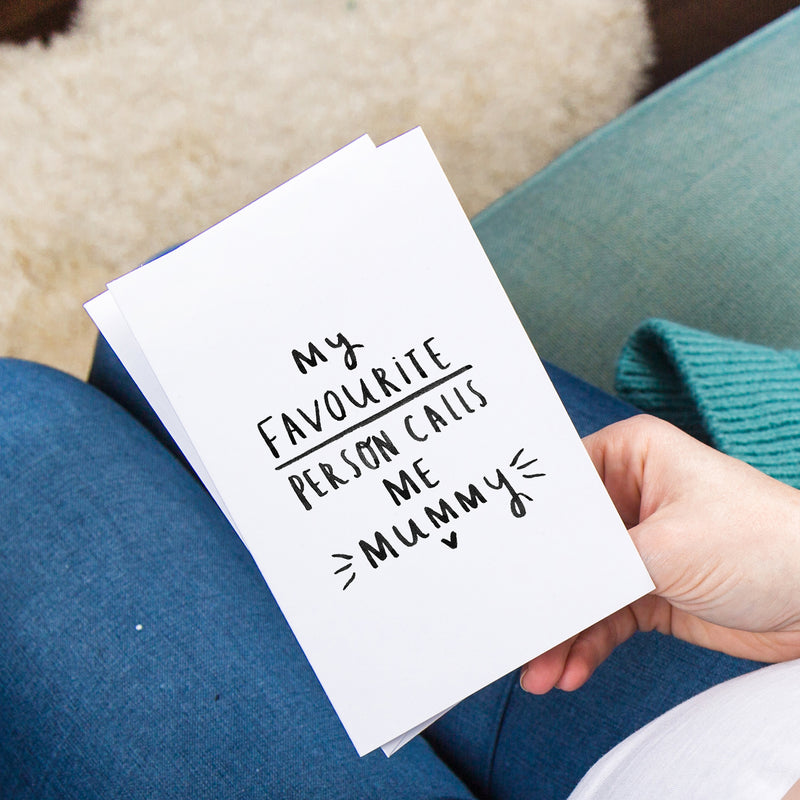 My
FAVOURiTE
PERSON CALLS
ME
MUMMy